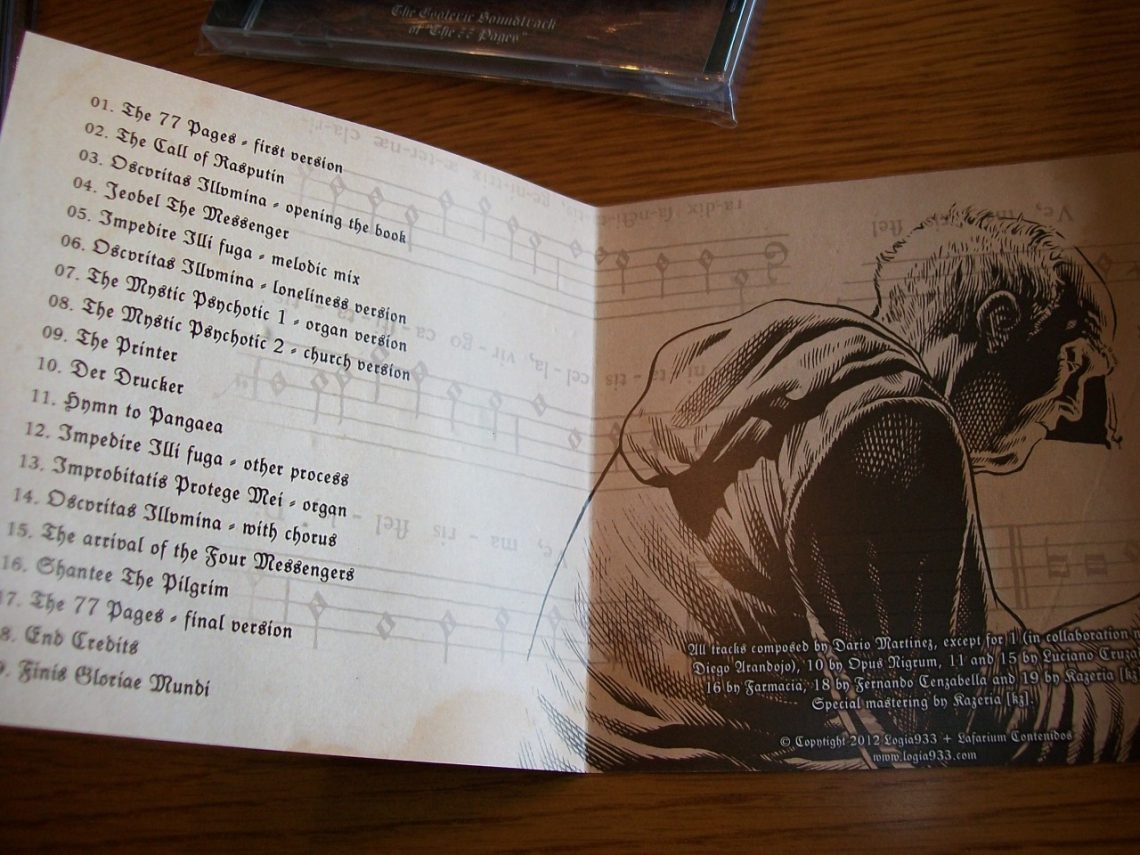 The Esoteric Soundtrack
of "The 77 Pages"
01. The 77 Pages - first version
02. The Call of Rasputin
03. Oscvritas Illvmina - opening the book
04. Jeobel The Messenger
05. Impedire Illi fuga - melodic mix
06. Oscvritas Illvmina - loneliness version
07. The Mystic Psychotic 1 - organ version
08. The Mystic Psychotic 2 - church version
09. The Printer
10. Der Drucker
11. Hymn to Pangaea
12. Impedire Illi fuga - other process
13. Improbitatis Protege Mei - organ
14. Oscvritas Illvmina - with chorus
15. The arrival of the Four Messengers
16. Shantee The Pilgrim
7. The 77 Pages - final version
8. End Credits
9. Finis Gloriae Mundi
All tracks composed by Dario Martinez, except for 1 (in collaboration
Diego Arandojo), 10 by Opus Nigrum, 11 and 15 by Luciano
16 by Farmacia, 18 by Fernando Cenzabella and 19 by Kazeria [kz
Special mastering by Kazeria [kz].
© Copyright 2012 Logia933 + Lafarium Contenidos
www.logia933.com